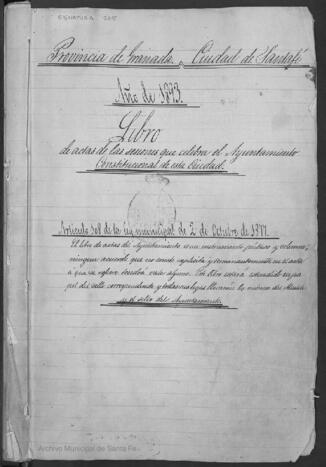 SIGNATURA 205
Provincia de Granada. Ciudad de Santafé
Año de 1893.
Libro
de actas de las sesiones que celebra el Ayuntamiento
Constitucional de esta Ciudad.
Artículo 108 de la ley municipal de 2 de Octubre de 1877.
El libro de actas de Ayuntamiento es un instrumento público y solemne,
ningun acuerdo que no conste explícita y terminantemente en el acta
a que se refiera tendrá valor alguno. Este libro estará extendido en pa-
pel del sello correspondiente y todas sus hojas llevarán la rúbrica del Alcalde
y el sello del Ayuntamiento.
Archivo Municipal de Santa Fe